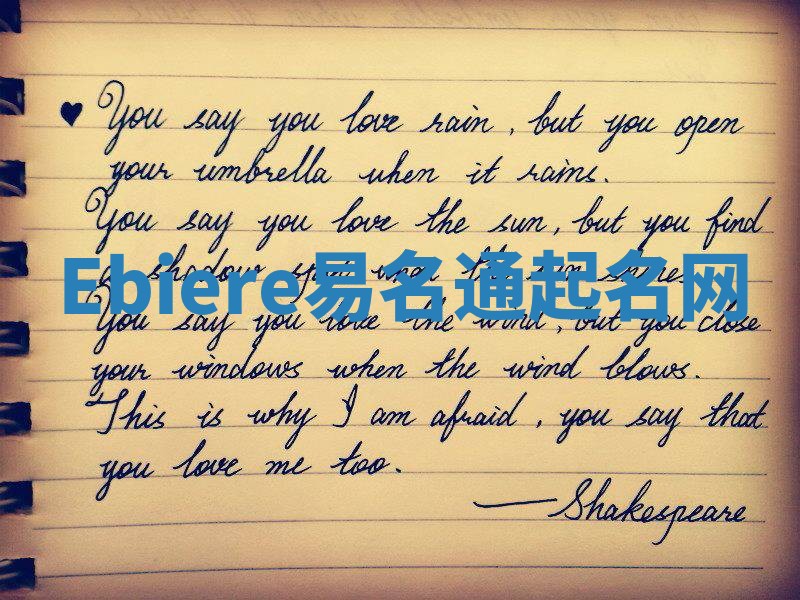 ♥ You say you love rain, but you open
your umbrella when it rains.
You say you love the sun, but you find
a shadow spot when the sun shines
Ebiere易名通起名网
You say you love the wind, but you close
your windows when the wind blows.
This is why I am afraid, you say that
you love me too.
—Shakespeare